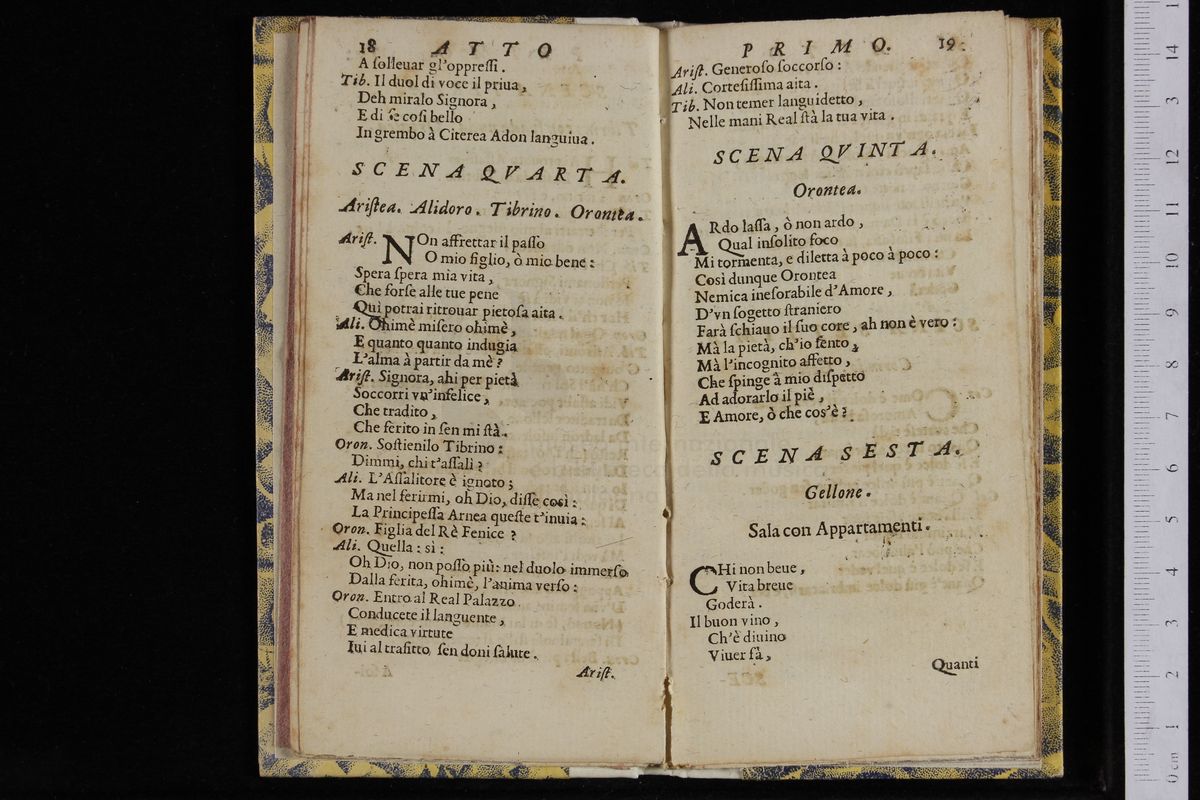 18 ATTO
A solleuar gl'oppressi.
Tib. Il duol di voce il priua,
Deh miralo Signora,
E di se così bello
In grembo à Citerea Adon languiua.
SCENA QVARTA.
Aristea. Alidoro. Tibrino. Orontea.
Arist. NOn affrettar il passo
O mio figlio, ò mio bene:
Spera spera mia vita,
Che forse alle tue pene
Quì potrai ritrouar pietosa aita.
Ali. Ohimè misero ohimè,
E quanto quanto indugia
L'alma à partir da mè?
Arist. Signora, ahi per pietà
Soccorri vn'infelice,
Che tradito,
Che ferito in sen mi stà.
Oron. Sostienilo Tibrino:
Dimmi, chi t'assalì?
Ali. L'Assalitore è ignoto;
Ma nel ferirmi, oh Dio, disse così:
La Principessa Arnea queste t'inuia:
Oron. Figlia del Rè Fenice?
Ali. Quella: sì:
Oh Dio, non posso più: nel duolo immerso
Dalla ferita, ohimè, l'anima verso:
Oron. Entro al Real Palazzo
Conducete il languente,
E medica virtute
Iui al trafitto sen doni salute.
Arist.
PRIMO. 19
Arist. Generoso soccorso:
Ali. Cortesissima aita.
Tib. Non temer languidetto,
Nelle mani Real stà la tua vita.
SCENA QVINTA.
Orontea.
ARdo lassa, ò non ardo,
Qual insolito foco
Mi tormenta, e diletta à poco à poco:
Così dunque Orontea
Nemica inesorabile d'Amore,
D'vn sogetto straniero
Farà schiauo il suo core, ah non è vero:
Mà la pietà, ch'io sento,
Mà l'incognito affetto,
Che spinge à mio dispetto
Ad adorarlo il piè,
E Amore, ò che cos'è?
SCENA SESTA.
Gellone.
Sala con Appartamenti.
CHi non beue,
Vita breue
Goderà.
Il buon vino,
Ch'è diuino
Viuer fà,
Quanti